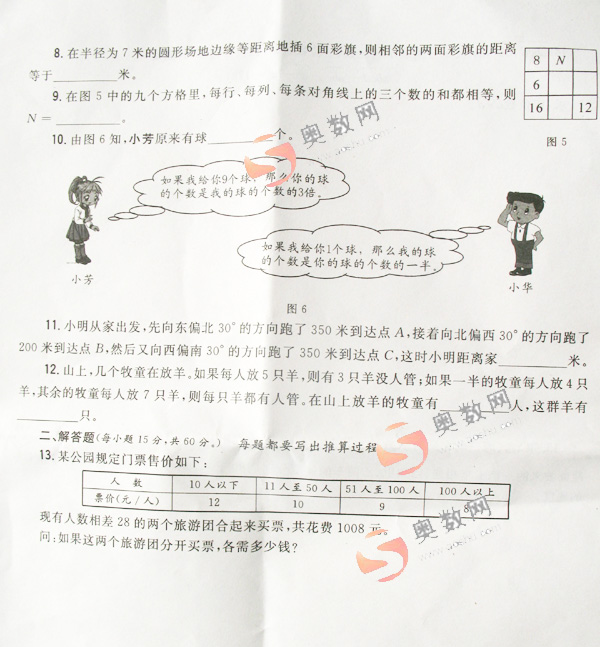 8. 在半径为 7 米的圆形场地边缘等距离地插 6 面彩旗,则相邻的两面彩旗的距离
等于________米。
9. 在图 5 中的九个方格里,每行、每列、每条对角线上的三个数的和都相等,则
N = ________。
8 N
6
16 12
图 5
10. 由图 6 知,小芳原来有球________个。
如果我给你9个球,那么你的球
的个数是我的球的个数的3倍。
如果我给你1个球,那么我的球
的个数是你的球的个数的一半。
小芳
小华
图 6
11. 小明从家出发,先向东偏北 30°的方向跑了 350 米到达点 A,接着向北偏西 30°的方向跑了
200 米到达点 B,然后又向西偏南 30°的方向跑了 350 米到达点 C,这时小明距离家________米。
12. 山上,几个牧童在放羊。如果每人放 5 只羊,则有 3 只羊没人管;如果一半的牧童每人放 4 只
羊,其余的牧童每人放 7 只羊,则每只羊都有人管。在山上放羊的牧童有________人,这群羊有
________只。
二、解答题(每小题 15 分,共 60 分。) 每题都要写出推算过程
13. 某公园规定门票售价如下:
人 数 10 人以下 11 人至 50 人 51 人至 100 人 100 人以上
票价(元 / 人) 12 10 9 8
现有人数相差 28 的两个旅游团合起来买票,共花费 1008 元。
问:如果这两个旅游团分开买票,各需多少钱?
奥数网
奥数网
奥数网